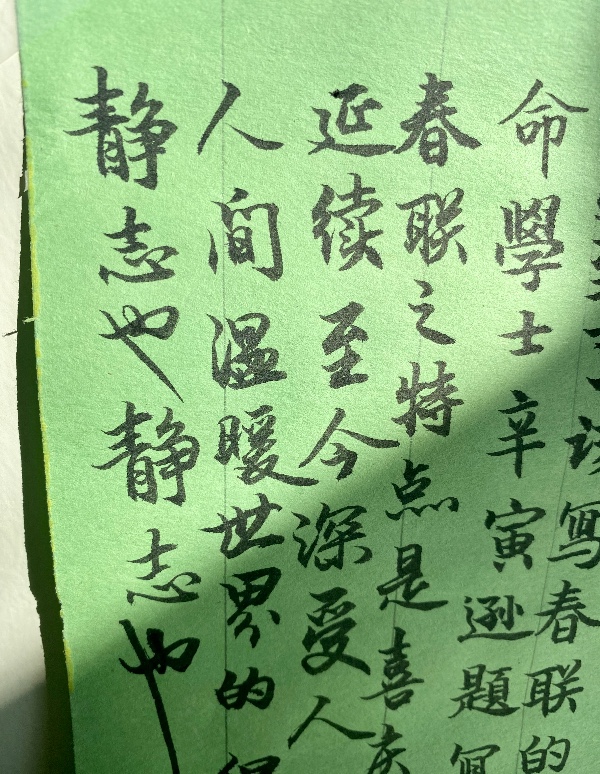 谈写春联的
命學士辛寅逊題
春联之特点是喜庆
延续至今深受人
人间温暖世界的
静志也静志也